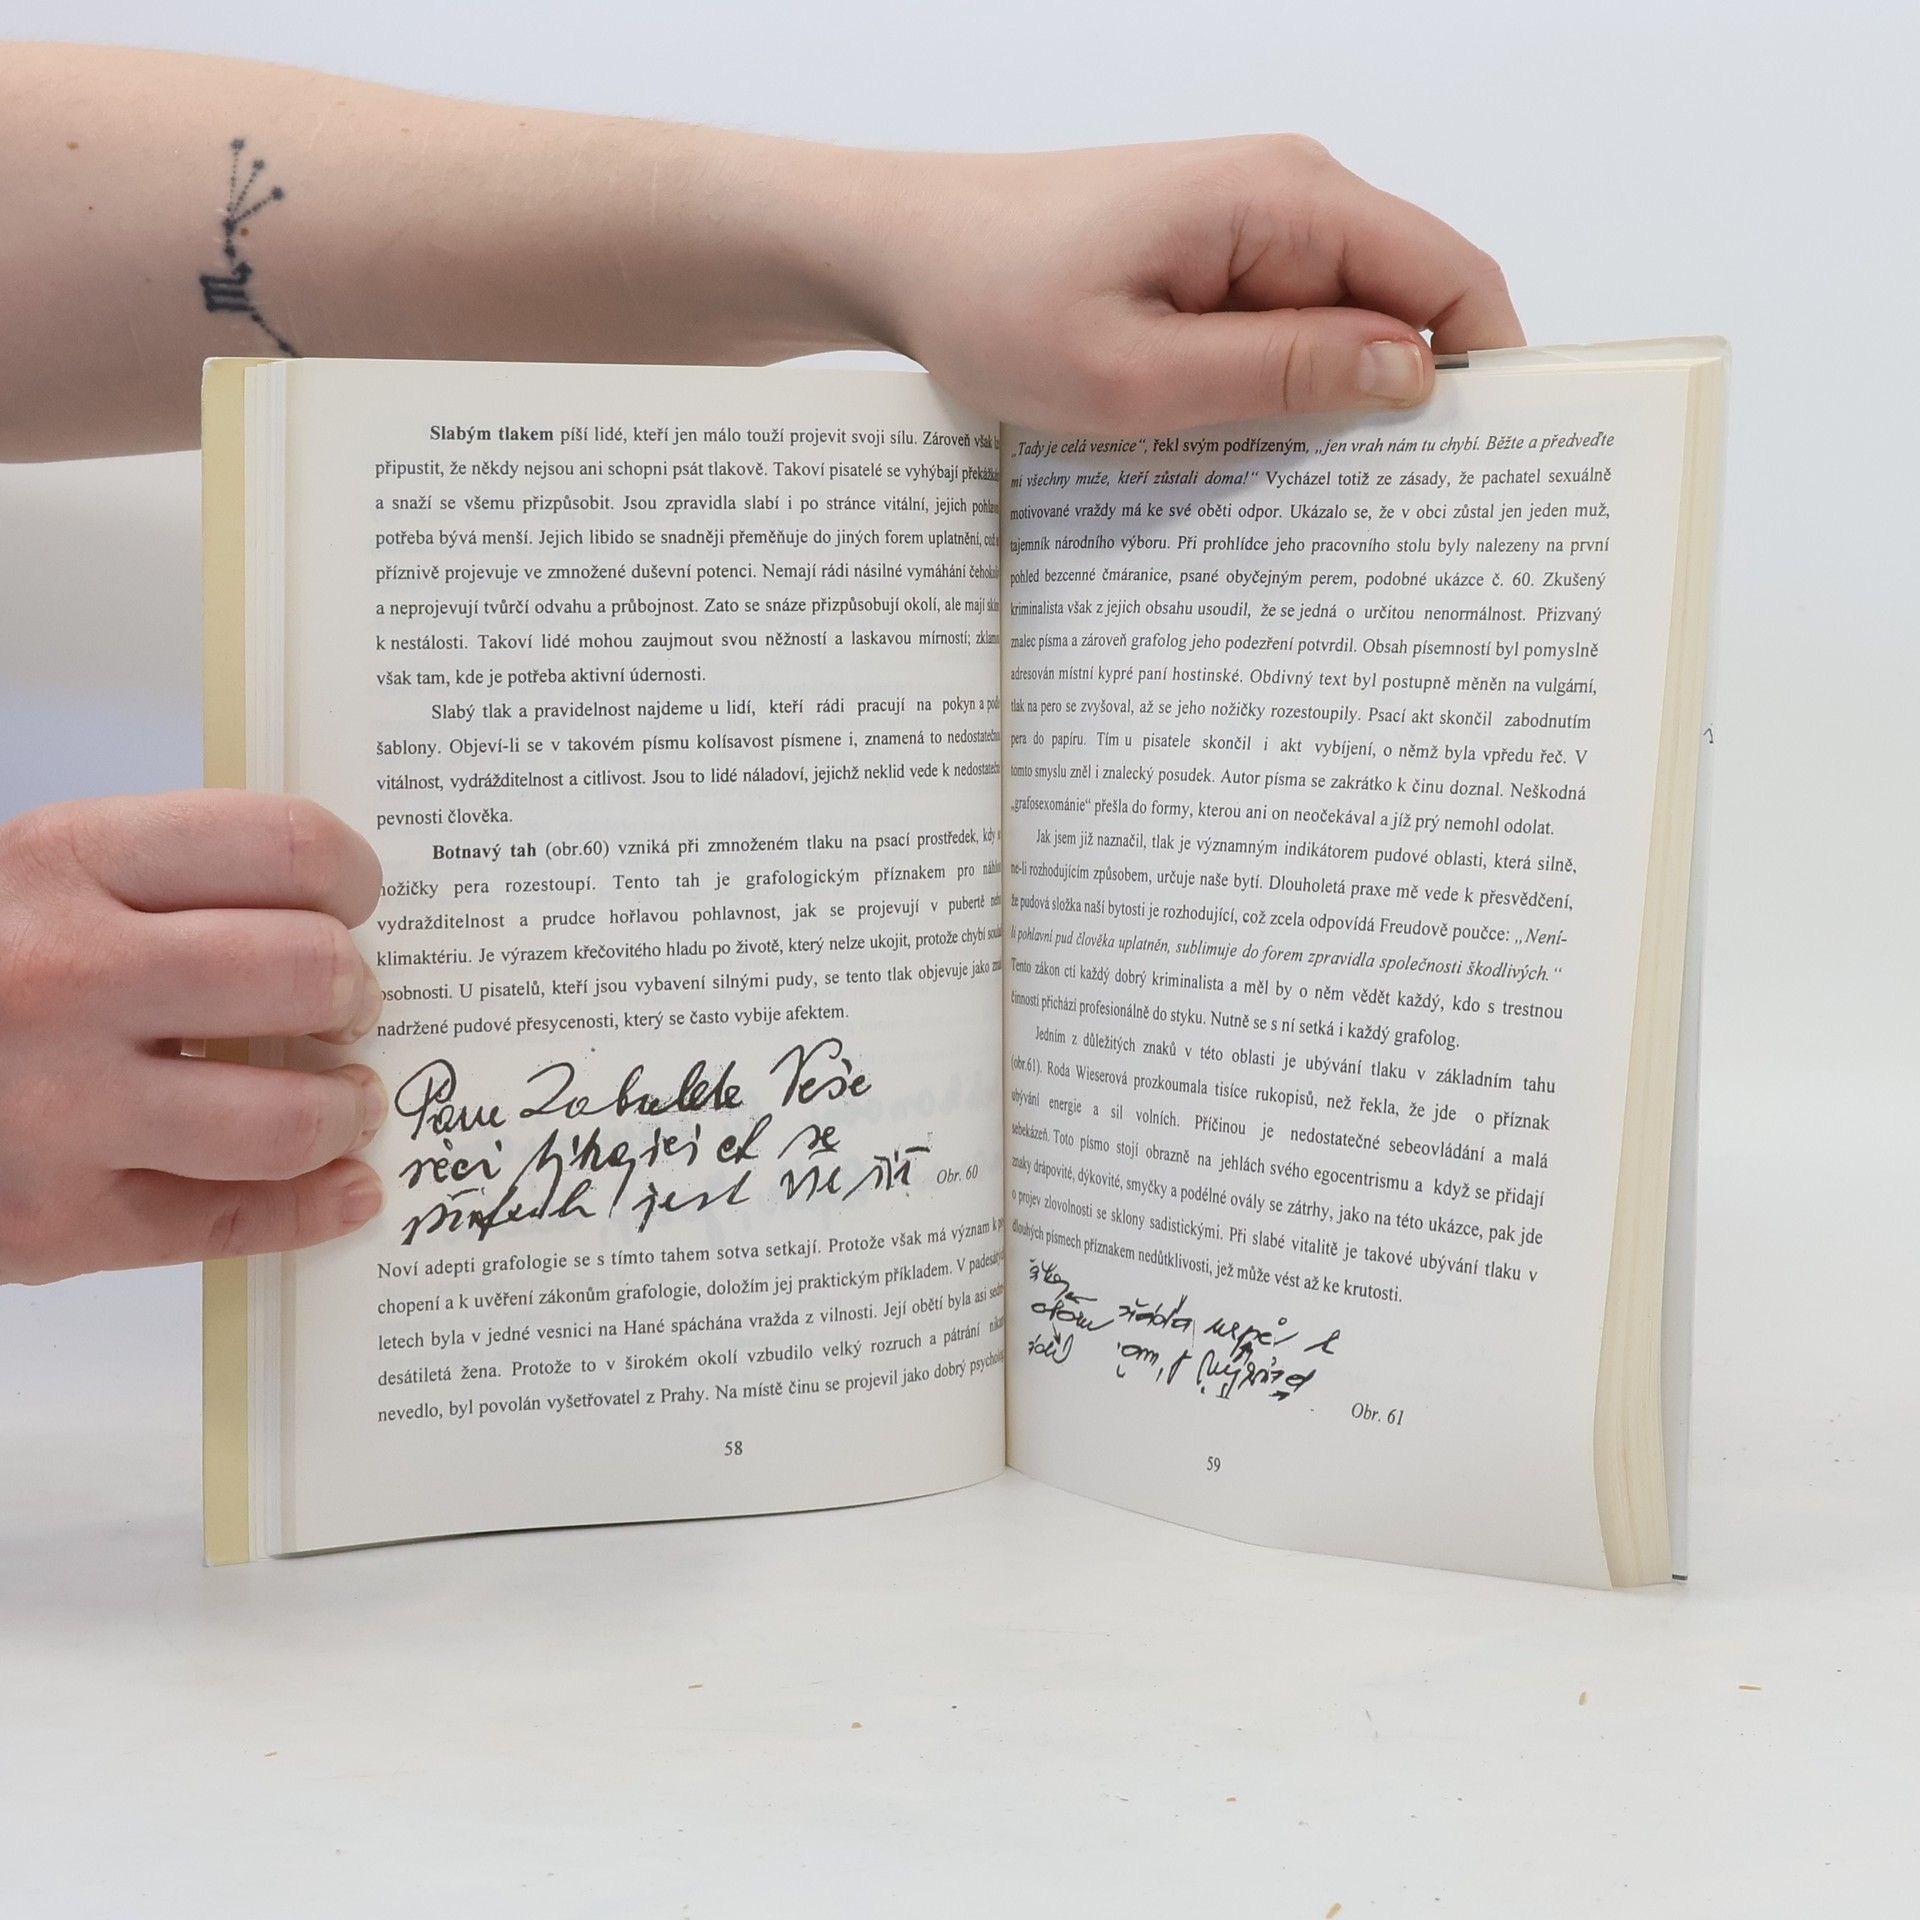 Slabým tlakem píší lidé, kteří jen málo touží projevit svoji sílu. Zároveň však
připustit, že někdy nejsou ani schopni psát tlakově. Takoví pisatelé se vyhýbají
a snaží se všemu přizpůsobit. Jsou zpravidla slabí i po stránce vitální, jejich
potřeba bývá menší. Jejich libido se snadněji přeměňuje do jiných forem uplatnění,
příznivě projevuje ve zmnožené duševní potenci. Nemají rádi násilné vymáhání
a neprojevují tvůrčí odvahu a průbojnost. Zato se snáze přizpůsobují okolí, ale mají
k nestálosti. Takoví lidé mohou zaujmout svou něžností a laskavou mírností;
však tam, kde je potřeba aktivní údernosti.
Slabý tlak a pravidelnost najdeme u lidí, kteří rádi pracují na pokyn a
šablony. Objeví-li se v takovém písmu kolísavost písmene i, znamená to
vitálnost, vydrážditelnost a citlivost. Jsou to lidé náladoví, jejichž neklid vede k
pevnosti člověka.
Botnavý tah (obr.60) vzniká při zmnoženém tlaku na psací prostředek,
nožičky pera rozestoupí. Tento tah je grafologickým příznakem pro
vydražditelnost a prudce hořlavou pohlavnost, jak se projevují v pubertě
klimaktériu. Je výrazem křečovitého hladu po životě, který nelze ukojit, protože chybí
osobnosti. U pisatelů, kteří jsou vybavení silnými pudy, se tento tlak objevuje jako
nadržené pudové přesycenosti, který se často vybije afektem.
se
jest
Obr. 60
Noví adepti grafologie se s tímto tahem sotva setkají. Protože však má význam k
chopení a k uvěření zákonům grafologie, doložím jej praktickým příkladem. V
letech byla v jedné vesnici na Hané spáchána vražda z vilnosti. Její obětí byla asi
desátiletá žena. Protože to v širokém okolí vzbudilo velký rozruch a pátrání
nevedlo, byl povolán vyšetřovatel z Prahy. Na místě činu se projevil jako dobrý
58
„Tady je celá vesnice“, řekl svým podřízeným, „jen vrah nám tu chybí. Běžte a předveďte
mi všechny muže, kteří zůstali doma!“ Vycházel totiž ze zásady, že pachatel sexuálně
motivované vraždy má ke své oběti odpor. Ukázalo se, že v obci zůstal jen jeden muž,
tajemník národního výboru. Při prohlídce jeho pracovního stolu byly nalezeny na první
pohled bezcenné čmáranice, psané obyčejným perem, podobné ukázce č. 60. Zkušený
kriminalista však z jejich obsahu usoudil, že se jedná o určitou nenormálnost. Přizvaný
znalec písma a zároveň grafolog jeho podezření potvrdil. Obsah písemností byl pomyslně
adresován místní kypré paní hostinské. Obdivný text byl postupně měněn na vulgární,
tlak na pero se zvyšoval, až se jeho nožičky rozestoupily. Psací akt skončil zabodnutím
pera do papíru. Tím u pisatele skončil i akt vybíjení, o němž byla vpředu řeč. V
tomto smyslu zněl i znalecký posudek. Autor písma se zakrátko k činu doznal. Neškodná
„grafosexománie“ přešla do formy, kterou ani on neočekával a jíž prý nemohl odolat.
Jak jsem již naznačil, tlak je významným indikátorem pudové oblasti, která silně,
ne-li rozhodujícím způsobem, určuje naše bytí. Dlouholetá praxe mě vede k přesvědčení,
že pudová složka naší bytosti je rozhodující, což zcela odpovídá Freudově poučce: „Není-
li pohlavní pud člověka uplatněn, sublimuje do forem zpravidla společnosti škodlivých.“
Tento zákon ctí každý dobrý kriminalista a měl by o něm vědět každý, kdo s trestnou
činností přichází profesionálně do styku. Nutně se s ní setká i každý grafolog.
Jedním z důležitých znaků v této oblasti je ubývání tlaku v základním tahu
(obr.61). Roda Wieserová prozkoumala tisíce rukopisů, než řekla, že jde o příznak
ubývání energie a sil volních. Příčinou je nedostatečné sebeovládání a malá
sebekázeň. Toto písmo stojí obrazně na jehlách svého egocentrismu a když se přidají
znaky drápovité, dýkovité, smyčky a podélné ovály se zátrhy, jako na této ukázce, pak jde
o projev zlovolnosti se sklony sadistickými. Při slabé vitalitě je takové ubývání tlaku v
dlouhých písmech příznakem nedůtklivosti, jež může vést až ke krutosti.
Obr. 61
59